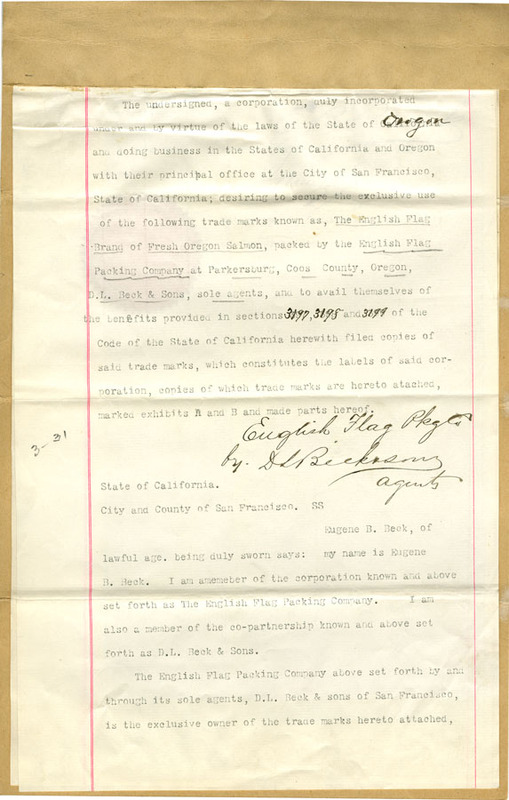 The undersigned, a corporation, duly incorporated
under and by virtue of the laws of the State of Oregon
and doing business in the States of California and Oregon
with their principal office at the City of San Francisco,
State of California; desiring to secure the exclusive use
of the following trade marks known as, The English Flag
Brand of Fresh Oregon Salmon, packed by the English Flag
Packing Company at Parkersburg, Coos County, Oregon,
D.L. Beck & Sons, sole agents, and to avail themselves of
the benefits provided in sections 3197, 3198 and 3199 of the
Code of the State of California herewith filed copies of
said trade marks, which constitutes the labels of said cor-
poration, copies of which trade marks are hereto atached,
marked exhibits A and B and made parts hereof.
English Flag Pkg Co
by. D L Beck & Sons
agents
3-31
State of California.
City and County of San Francisco. SS
Eugene B. Beck, of
lawful age. being duly sworn says: my name is Eugene
B. Beck. I am amemeber of the corporation known and above
set forth as The English Flag Packing Company. I am
also a member of the co-partnership known and above set
forth as D.L. Beck & Sons.
The English Flag Packing Company above set forth by and
through its sole agents, D.L. Beck & sons of San Francisco,
is the exclusive owner of the trade marks hereto attached,